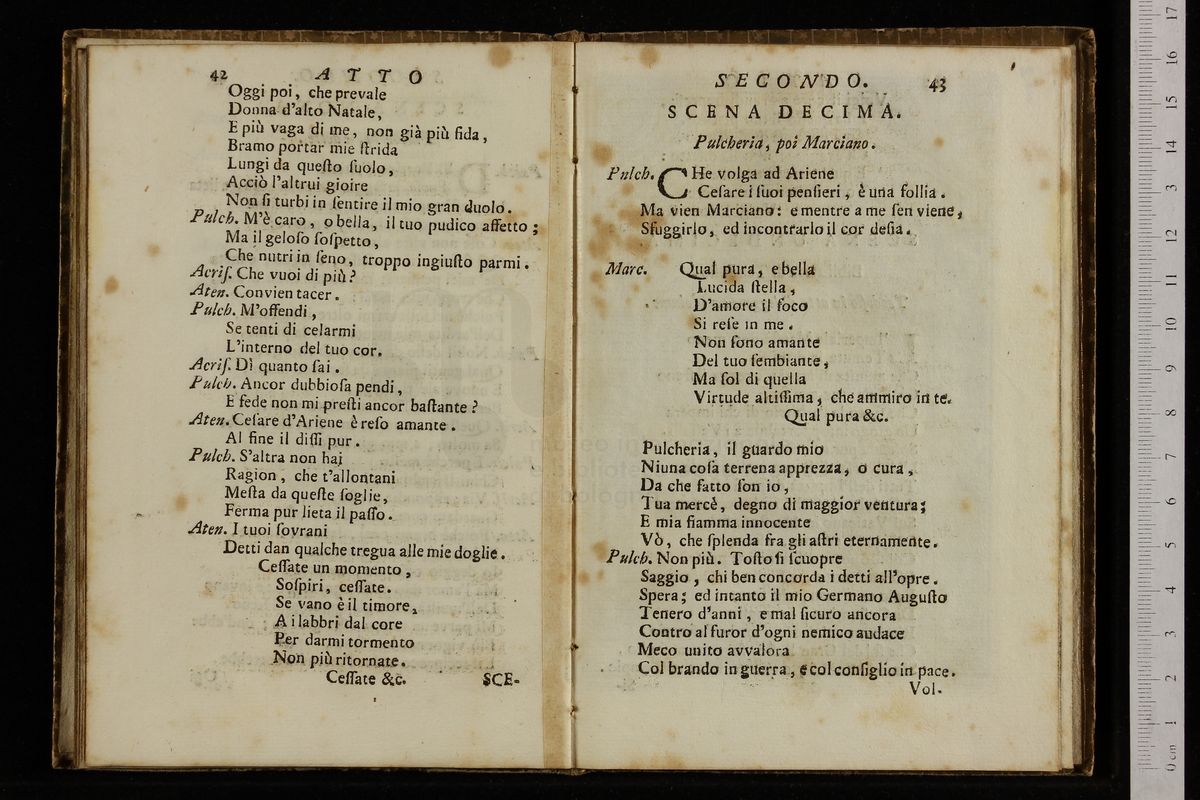 42 ATTO
Oggi poi, che prevale
Donna d'alto Natale,
E più vaga di me, non già più fida,
Bramo portar mie ſtrida
Lungi da queſto ſuolo,
Acciò l'altrui gioire
Non ſi turbi in ſentire il mio gran duolo.
Pulch. M'è caro, o bella, il tuo pudico affetto;
Ma il geloſo ſoſpetto,
Che nutri in ſeno, troppo ingiuſto parmi.
Acriſ. Che vuoi di più?
Aten. Convien tacer.
Pulch. M'offendi,
Se tenti di celarmi
L'interno del tuo cor.
Acriſ. Dì quanto ſai.
Pulch. Ancor dubbioſa pendi,
E fede non mi preſti ancor baſtante?
Aten. Ceſare d'Ariene è reſo amante.
Al fine il diſſi pur.
Pulch. S'altra non hai
Ragion, che t'allontani
Meſta da queſte ſoglie,
Ferma pur lieta il paſſo.
Aten. I tuoi ſovrani
Detti dan qualche tregua alle mie doglie.
Ceſſate un momento,
Soſpiri, ceſſate.
Se vano è il timore,
A i labbri dal core
Per darmi tormento
Non più ritornate.
Ceſſate &c.
SCE-
SECONDO. 43
SCENA DECIMA.
Pulcheria, poi Marciano.
Pulch. CHe volga ad Ariene
Ceſare i ſuoi penſieri, è una follia.
Ma vien Marciano: e mentre a me ſen viene,
Sfuggirlo, ed incontrarlo il cor deſia.
Marc. Qual pura, e bella
Lucida ſtella,
D'amore il foco
Si reſe in me.
Non ſono amante
Del tuo ſembiante,
Ma ſol di quella
Virtude altiſſima, che ammiro in te.
Qual pura &c.
Pulcheria, il guardo mio
Niuna coſa terrena apprezza, o cura,
Da che fatto ſon io,
Tua mercè, degno di maggior ventura;
E mia fiamma innocente
Vò, che ſplenda fra gli aſtri eternamente.
Pulch. Non più. Toſto ſi ſcuopre
Saggio, chi ben concorda i detti all'opre.
Spera; ed intanto il mio Germano Auguſto
Tenero d'anni, e mal ſicuro ancora
Contro al furor d'ogni nemico audace
Meco unito avvalora
Col brando in guerra, e col conſiglio in pace.
Vol-
0 cm 1 2 3 4 5 6 7 8 9 10 11 12 13 14 15 16 17